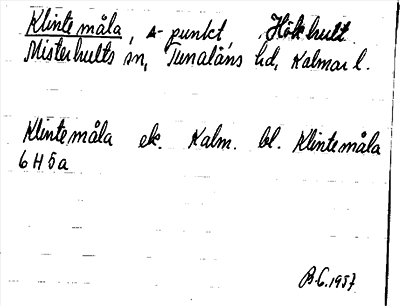 Klintemåla, △-punkt, Hökhult
Misterhults sn, Tunaläns hd, Kalmar l.
Klintemåla ek. Kalm. bl. Klintemåla
6H5a
B-C. 1957